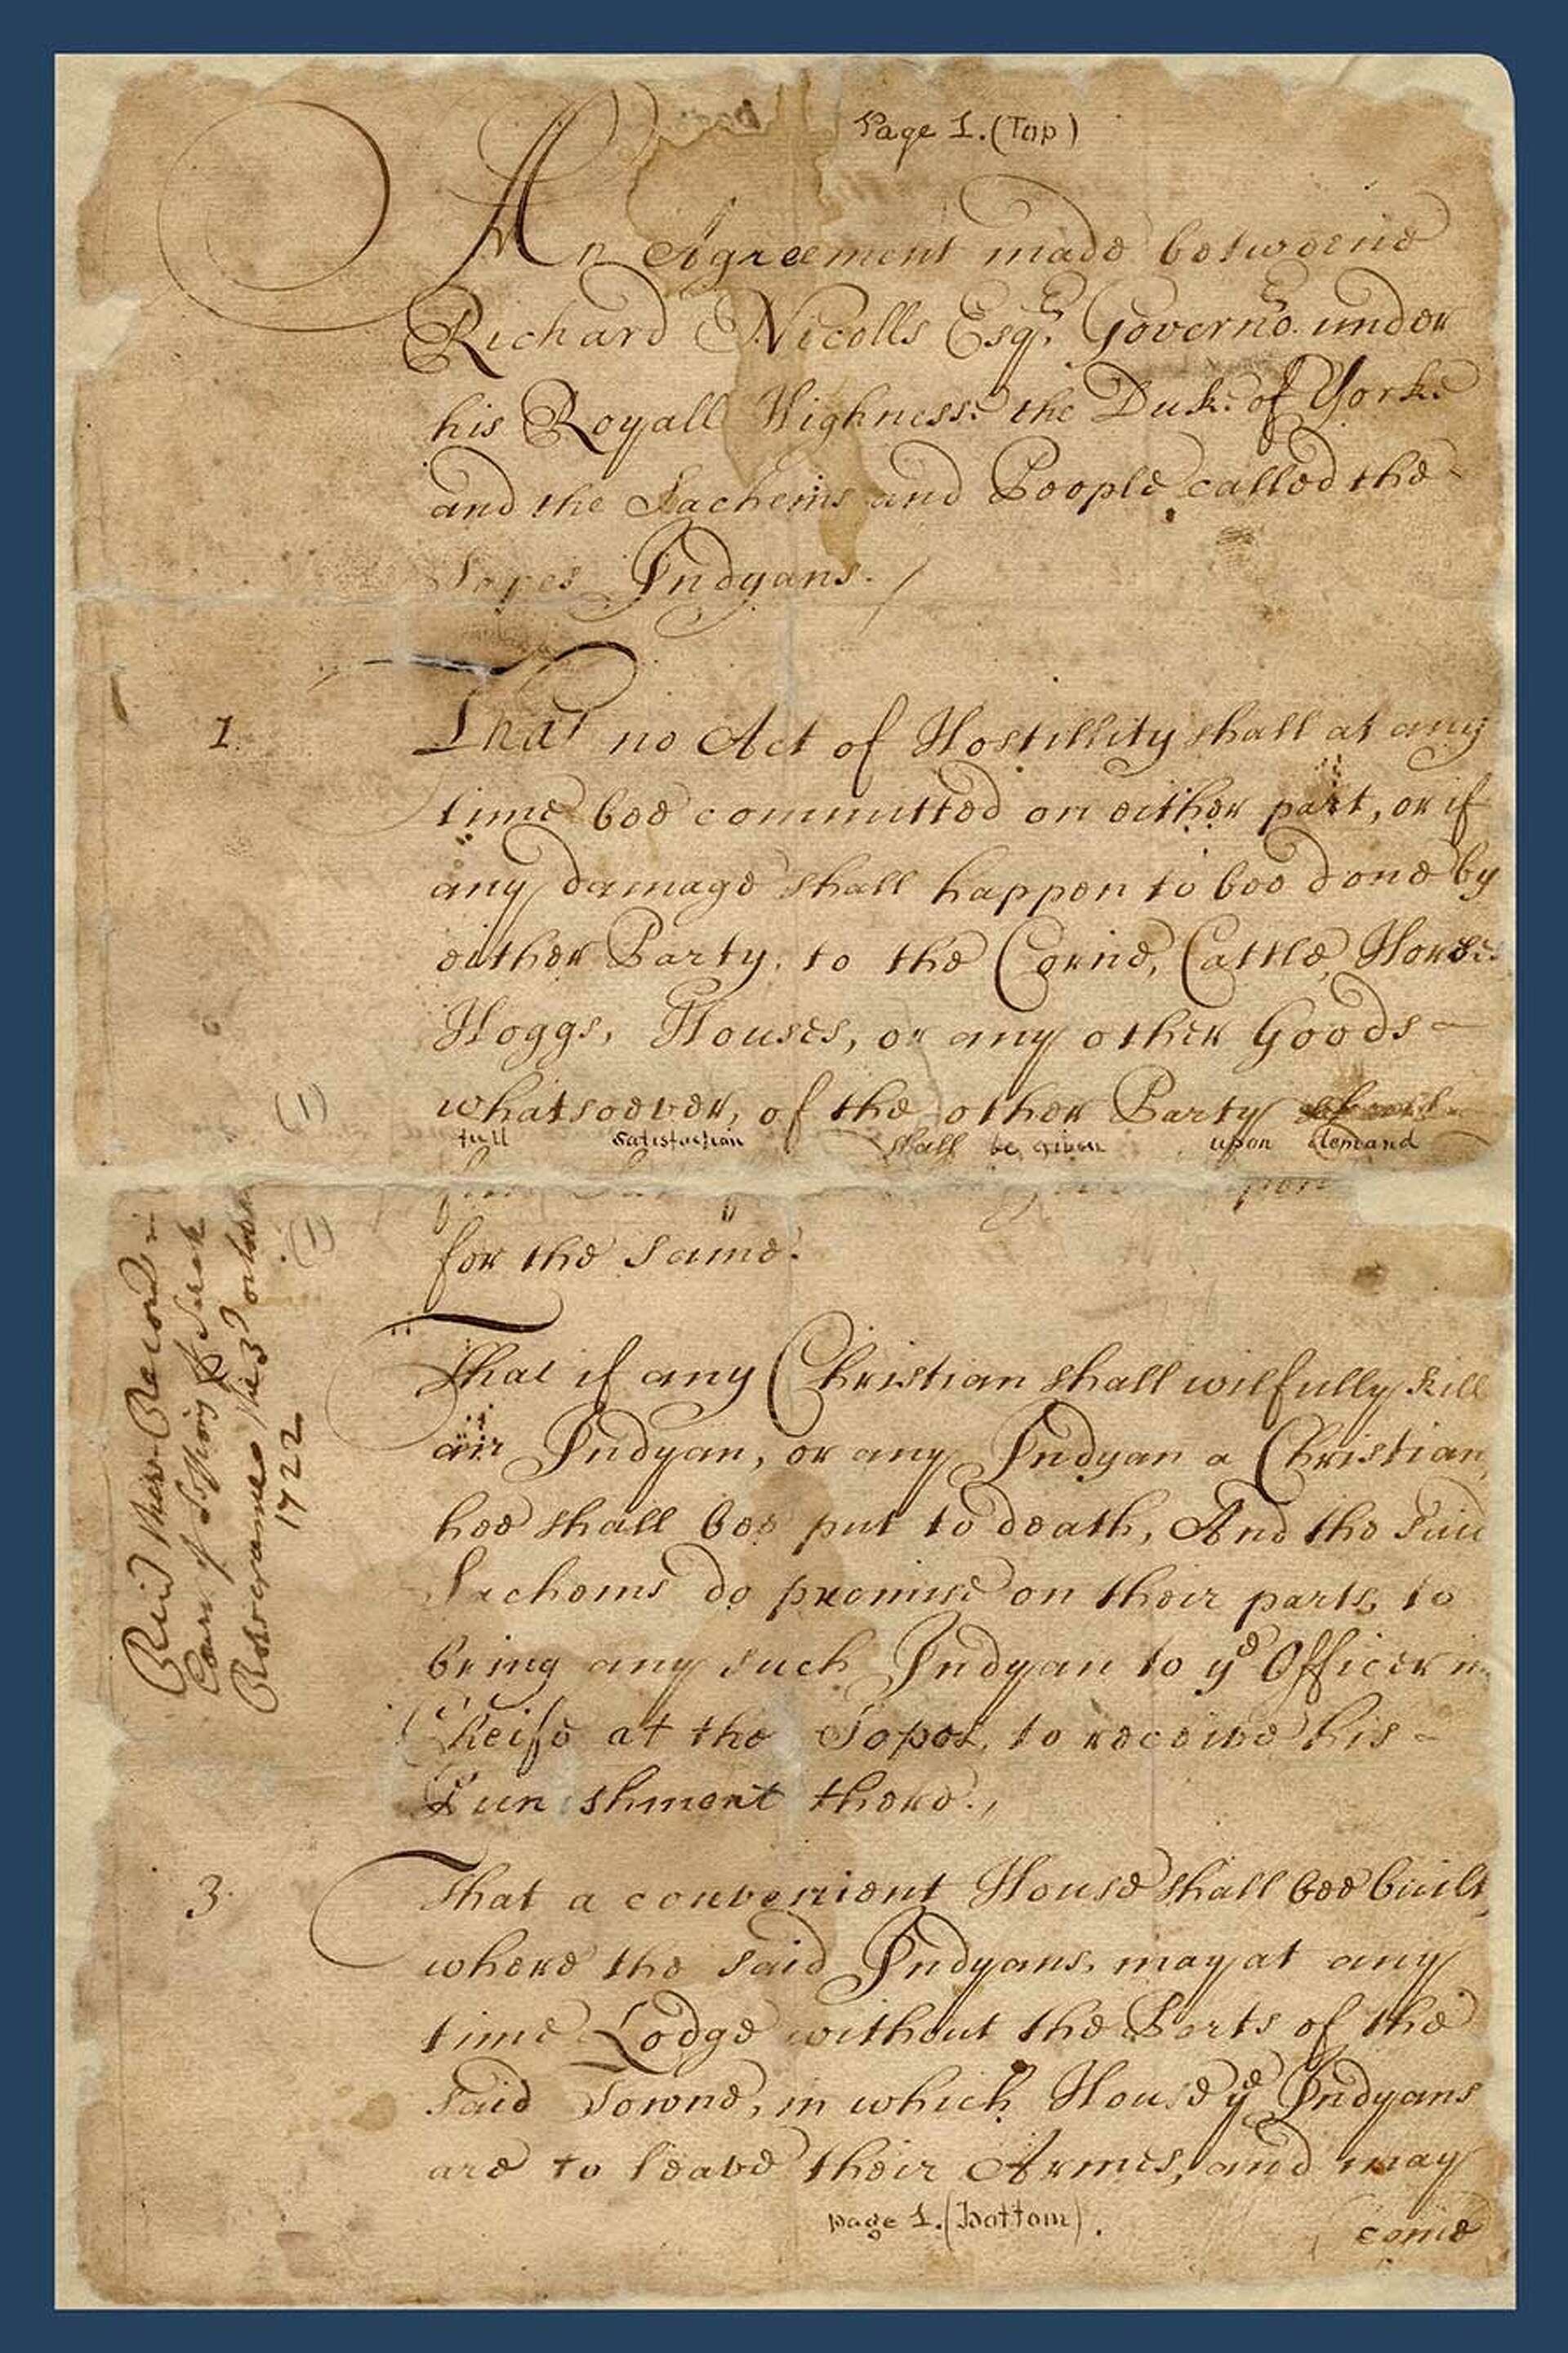 Page 1. (Top)
An Agreement made betweene
Richard Nicolls Esqr. Governor. under
his Royall Highnesse the Duke of Yorke
and the Sachems and People called the
Sopes Indyans.
1.
That no Act of Hostillity shall at any
time bee committed on either part, or if
any damage shall happen to bee done by
either Party, to the Corne, Cattle, Horses
Hoggs, Houses, or any other Goods
whatsoever, of the other Party
full satisfaction shall be given upon demand
(1)
for the same.
(1)
That if any Christian shall wilfully kill
an Indyan, or any Indyan a Christian,
hee shall bee put to death, And the said
Sachems do promise on their parts, to
bring any such Indyan to ye Officer in
Cheife at the Sopes, to receive his
Punishment there.
3.
That a convenient House shall bee built,
where the said Indyans, may at any
time Lodge without the Ports of the
said Towne, in which House ye Indyans
are to leave their Armes, and may
come
page 1. (bottom).
1722